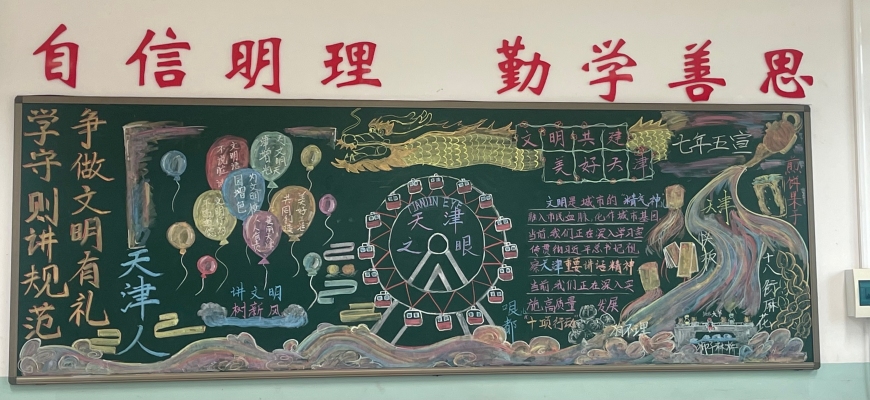 自信明理 勤学善思
争做文明有礼
天津人
学守则讲规范
讲文明
树新风
TIANJIN EYE
天津
之眼
文明共建
美好天津
七年五宣
文明是城市的“精气神”
融入市民血脉，化作城市基因
当前，我们正在深入学习宣
传贯彻习近平总书记视
察天津重要讲话精神
当前，我们正在深入实
施高质量发展
十项行动
天津
快板
煎饼果子
十八街麻花
狗不理